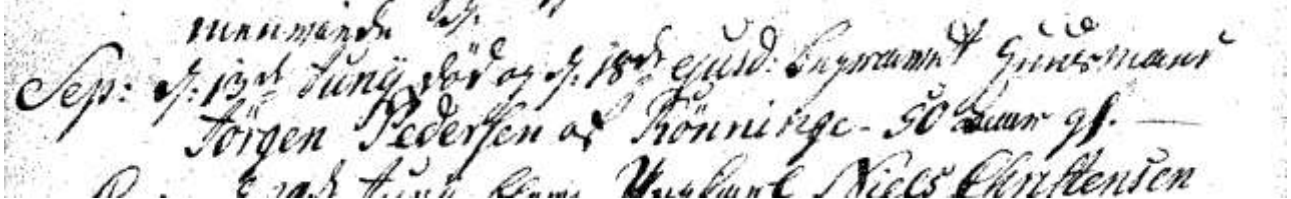 Sep: d: 13de Juny død og d: 18de ejusd: begravet Huusmand
Jörgen Pedersen af Rönninge - 50 Aar gl. —
Juny blev Ungkarl Niels Christensen